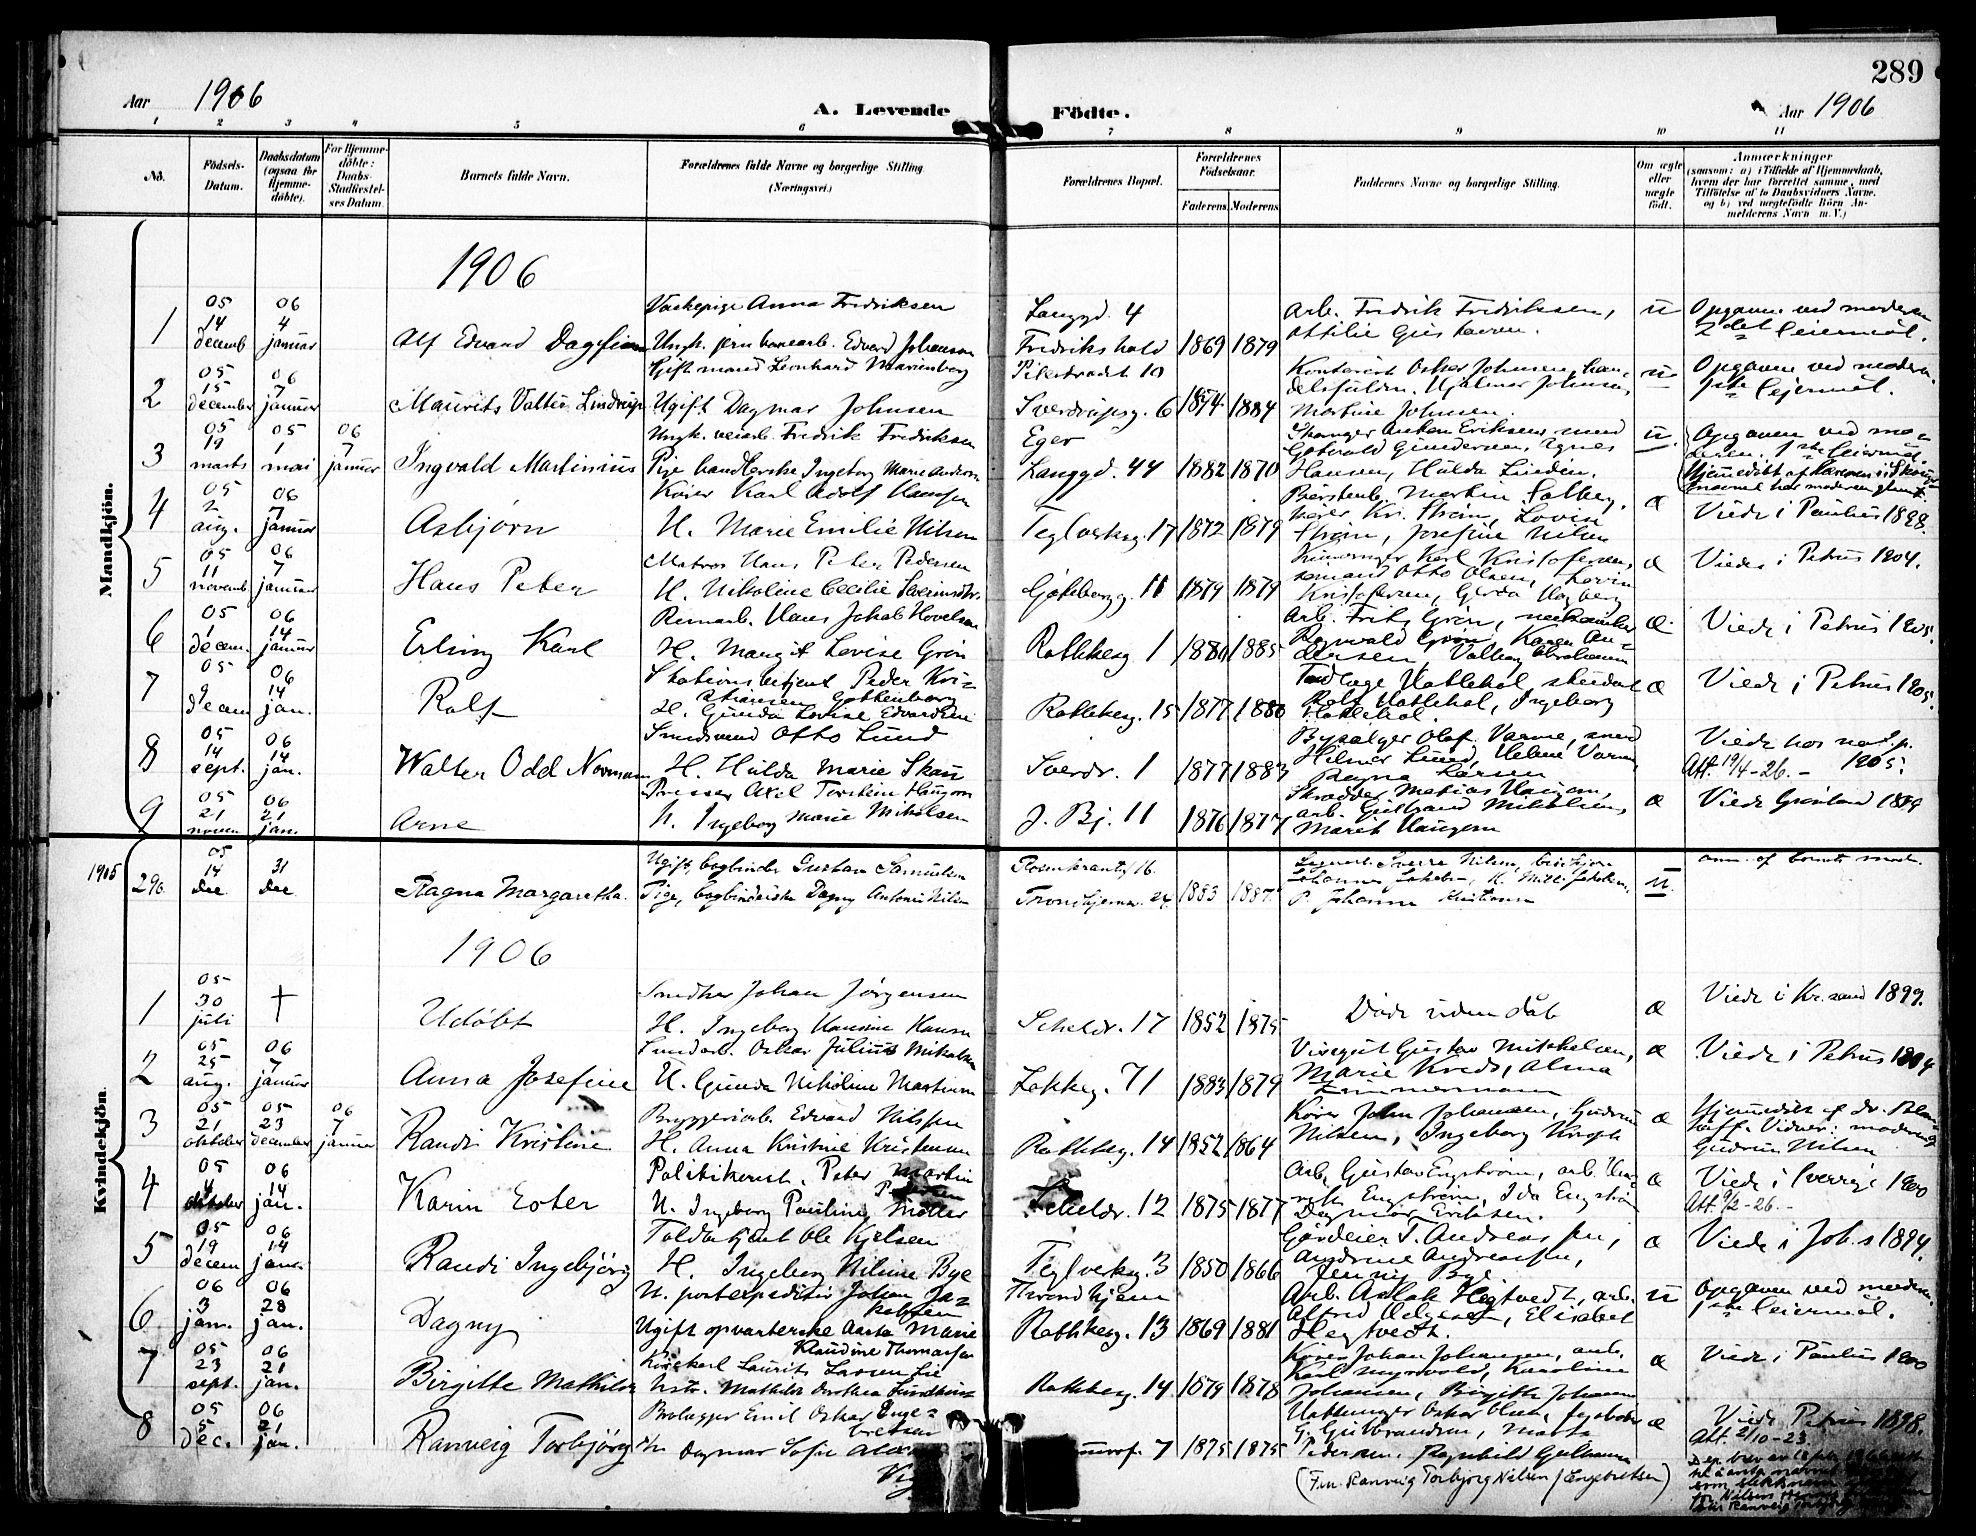 289
Aar 1906
A. Levende
Födte.
Aar 1906
1 2 3 4 5 6 7 8 9 10 11
No.
Födsels-
Datum.
Daabsdatum
(ogsaa for
Hjemme-
döbte).
For Hjemme-
döbte:
Daabs-
Stadfæstel-
ses Datum.
Barnets fulde Navn.
Forældrenes fulde Navne og borgerlige Stilling
(Næringsvei.)
Forældrenes Bopæl.
Forældrenes
Födselsaar.
Faderens. Moderens.
Faddernes Navne og borgerlige Stilling.
Om ægte
eller
uægte
födt.
Anmærkninger
(saasom: a) i Tilfælde af Hjemmedaab,
hvem der har forrettet samme, med
Tilföielse af to Daabsvidners Navne.
og b) ved uægtefödte Börn An-
melderens Navn m. V.)
Mandkjön.
1906
1
05
14
decemb
06
4
januar
Alf Edvard Dagfinn
Vaskepige Anna Fredriksen
Ungk. jernbanearb. Edvard Johansen
Langgd. 4
Fredrikshald
1869 1879
Arb. Fredrik Fredriksen,
Ottilie Gustavsen.
u
Opgaven ved moderen
2det leiermål.
2
05
15
december
06
7
januar
Maurits Valter Lindrup
Gift mand Leonhard Marienborg
Ugift Dagmar Johnsen
Pilestrædet 10
Sverdrupsg. 6
1874 1884
Kontorist Oskar Johnsen, han-
delsfuldm. Hjalmar Johnsen,
Martine Johnsen.
u
Opgaven ved modern.
1ste leiermål.
3
05
19
marts
05
1
mai
06
7
januar
Ingvald Martinius
Ungk. veiarb. Fredrik Fredriksen
Pige handlerske Ingeborg Marie Andersen
Eger
Langgd. 44
1882 1870
Gotvald Gundersen, Agnes
Hansen, Hulda Linden.
u.
Opgaven ved mo-
deren. 1ste leiermål.
4
05
2
aug.
06
7
januar
Asbjørn
Kører Karl Adolf Hansen
H. Marie Emilie Nilsen
Teglverksg. 17
1872 1879
Børstenb. Martin Solberg,
Strøm, Josefine Nilsen
æ
Viede i Paulus 1898.
5
05
11
novemb
06
7
januar
Hans Peter
Matros Hans Peter Pedersen
H. Nikoline Cecilie
Gøteborgg. 11
1879 1879
Karl Kristofersen,
sømand Otto Olsen, Lovise
Kristofersen, Gerda Hagberg
æ
Viede i Petrus 1904.
6
05
1
decem.
06
14
januar
Erling Karl
Remarb. Hans Jakob Hovelsen
H. Margit Lovise Grøn
Rathkesg. 1
1880 1885
Arb. Frits Grøn, mekaniker
Ragnvald Grøn, Kagen An-
dersen, Valborg Abrahamsen
æ
Viede i Petrus 1905.
7
05
9
decem
06
14
jan.
Rolf
Stationsbetjent Peder Kri-
stiansen Gotkenborg
H. Gunda Lovise Edvardsen
Rathkesg. 15
1877 1880
Tandlæge Hatlehol, student
Rolf Hatlehol, Ingeborg
Hatlehol.
æ
Viede i Petrus 1905.
8
05
14
sept.
06
14
jan.
Walter Odd Norman
Smedsvend Otto Lund
H. Hulda Marie Skau
Sverdr. 1
1877 1883
Bysælger Olaf Varme, smed
Hilmer Lund, Helene Varme,
Ragna Larsen
Viede hos not. p.
1905.
Att. 19/4-26. -
9
05
21
novem
06
21
jan.
Arne
Presser Axel Torstein Haugom
H. Ingeborg Marie Mikelsen
J. Bj. 11
1876 1877
Skrædder Matias Haugom,
arb. Gulbrand Mikkelsen,
Marit Haugom
æ
Viede Grønland 1899
1905
296.
05
14
Dec
31
Dec
Ragna Margaretha.
Ugift, bogbinder Gustav Samuelsen
Pige, bogbinderske Dagny Antonie Nilsen
Rosenkrantzg 16.
Trondhjemsv. 24.
1883 1887.
Johannes Jakobsen, H. Milli Jakobsen,
P. Johanne Kristiansen
u.
anm. af barnets mod.
Kvindekjön
1906
1
05
30
juli
†
Udøbt
Smedker Johan Jørgensen
H. Ingeborg Hansine Hansen
Scheldr. 17
1852 1875
Døde uden dåb
æ
Viede i Kr.sand 1899.
2
05
25
aug.
06
7
januar
Anna Josefine
Smedarb. Oskar Julius Mikalsen
H. Gunda Nikoline Martinsen
Lakkeg. 71
1883 1879
Visegut Gustav Mikkelsen,
Marie Kreds, Alma
Zimmermann
æ
Viede i Petrus 1904
3
05
21
oktober
05
23
december
06
7
januar
Randi Kristine
Bryggeriarb. Edvard Nilsen
H. Anna Kristine Kristensen
Rathkesg. 14
1852 1864
Kører John Johansen, Gudrun
Nilsen, Ingeborg
æ
Hjemmedøbt af dr.
Vidner: moderen og
Gudrun Nilsen
4
05
4
oktober
06
14
jan.
Karin Ester
Politikonst. Peter Martin
H. Ingeborg Pauline Møller
Scheldr. 12
1875 1877
Arb. Gustav Engstrøm, arb. Hen-
rik Engstrøm, Ida Engstrøm
Dagmar Eriksen.
æ
Viede i Sverige 1900
Att. 9/2-26. -
5
05
19
decem
06
14
jan.
Randi Ingebjörg
Toldbetjent Ole Kjelsen
H. Ingeborg Nilsine Bye
Teglverksg. 3
1850 1866
Gårdeier T. Andreassen,
Andrine Andreassen,
Jenny Bye.
æ
Viede i Job.s 1894.
6
06
3
jan.
06
28
jan.
Dagny
U. postexpeditør Johan Ja-
kobsen
Ugift opvarterske Aasta Marie
Klaudine Thomassen
Trondhjem
Rathkesg. 13
1869 1881
Arb. Aslak Hegtvedt, arb.
Alfred Helgesen, Elisabet
Hegtvedt.
u
Opgaven ved moderen.
1ste leiermål.
7
05
23
sept.
06
21
jan.
Birgitte Mathilde
Laurits Larsen Lie
Hstr. Mathilde Dorthea
Rathkesg. 14
1879 1878
Kører Johan Johansen, arb.
Karl Myrvold, Karoline
Johansen, Birgitte Johansen
æ
Viede i Paulus 1900
8
05
5
dec.
06
21
jan.
Ranveig Torbjørg
Brolægger Emil Oskar Enge-
bretsen
H. Dagmar Sofie
7
1875 1875
Oskar Olsen,
G. Gulbrandsen, Marta
Pedersen, Ragnhild Gulbrandsen
(F.n. Ranveig Torbjørg Nilsen f Engebretsen)
æ
Viede Petrus 1898.
Att. 2/10-23.